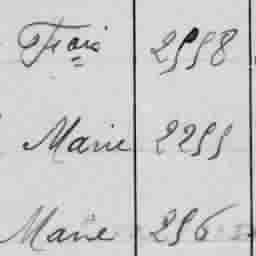 Fçois 2558
Marie 2255
Marie 256